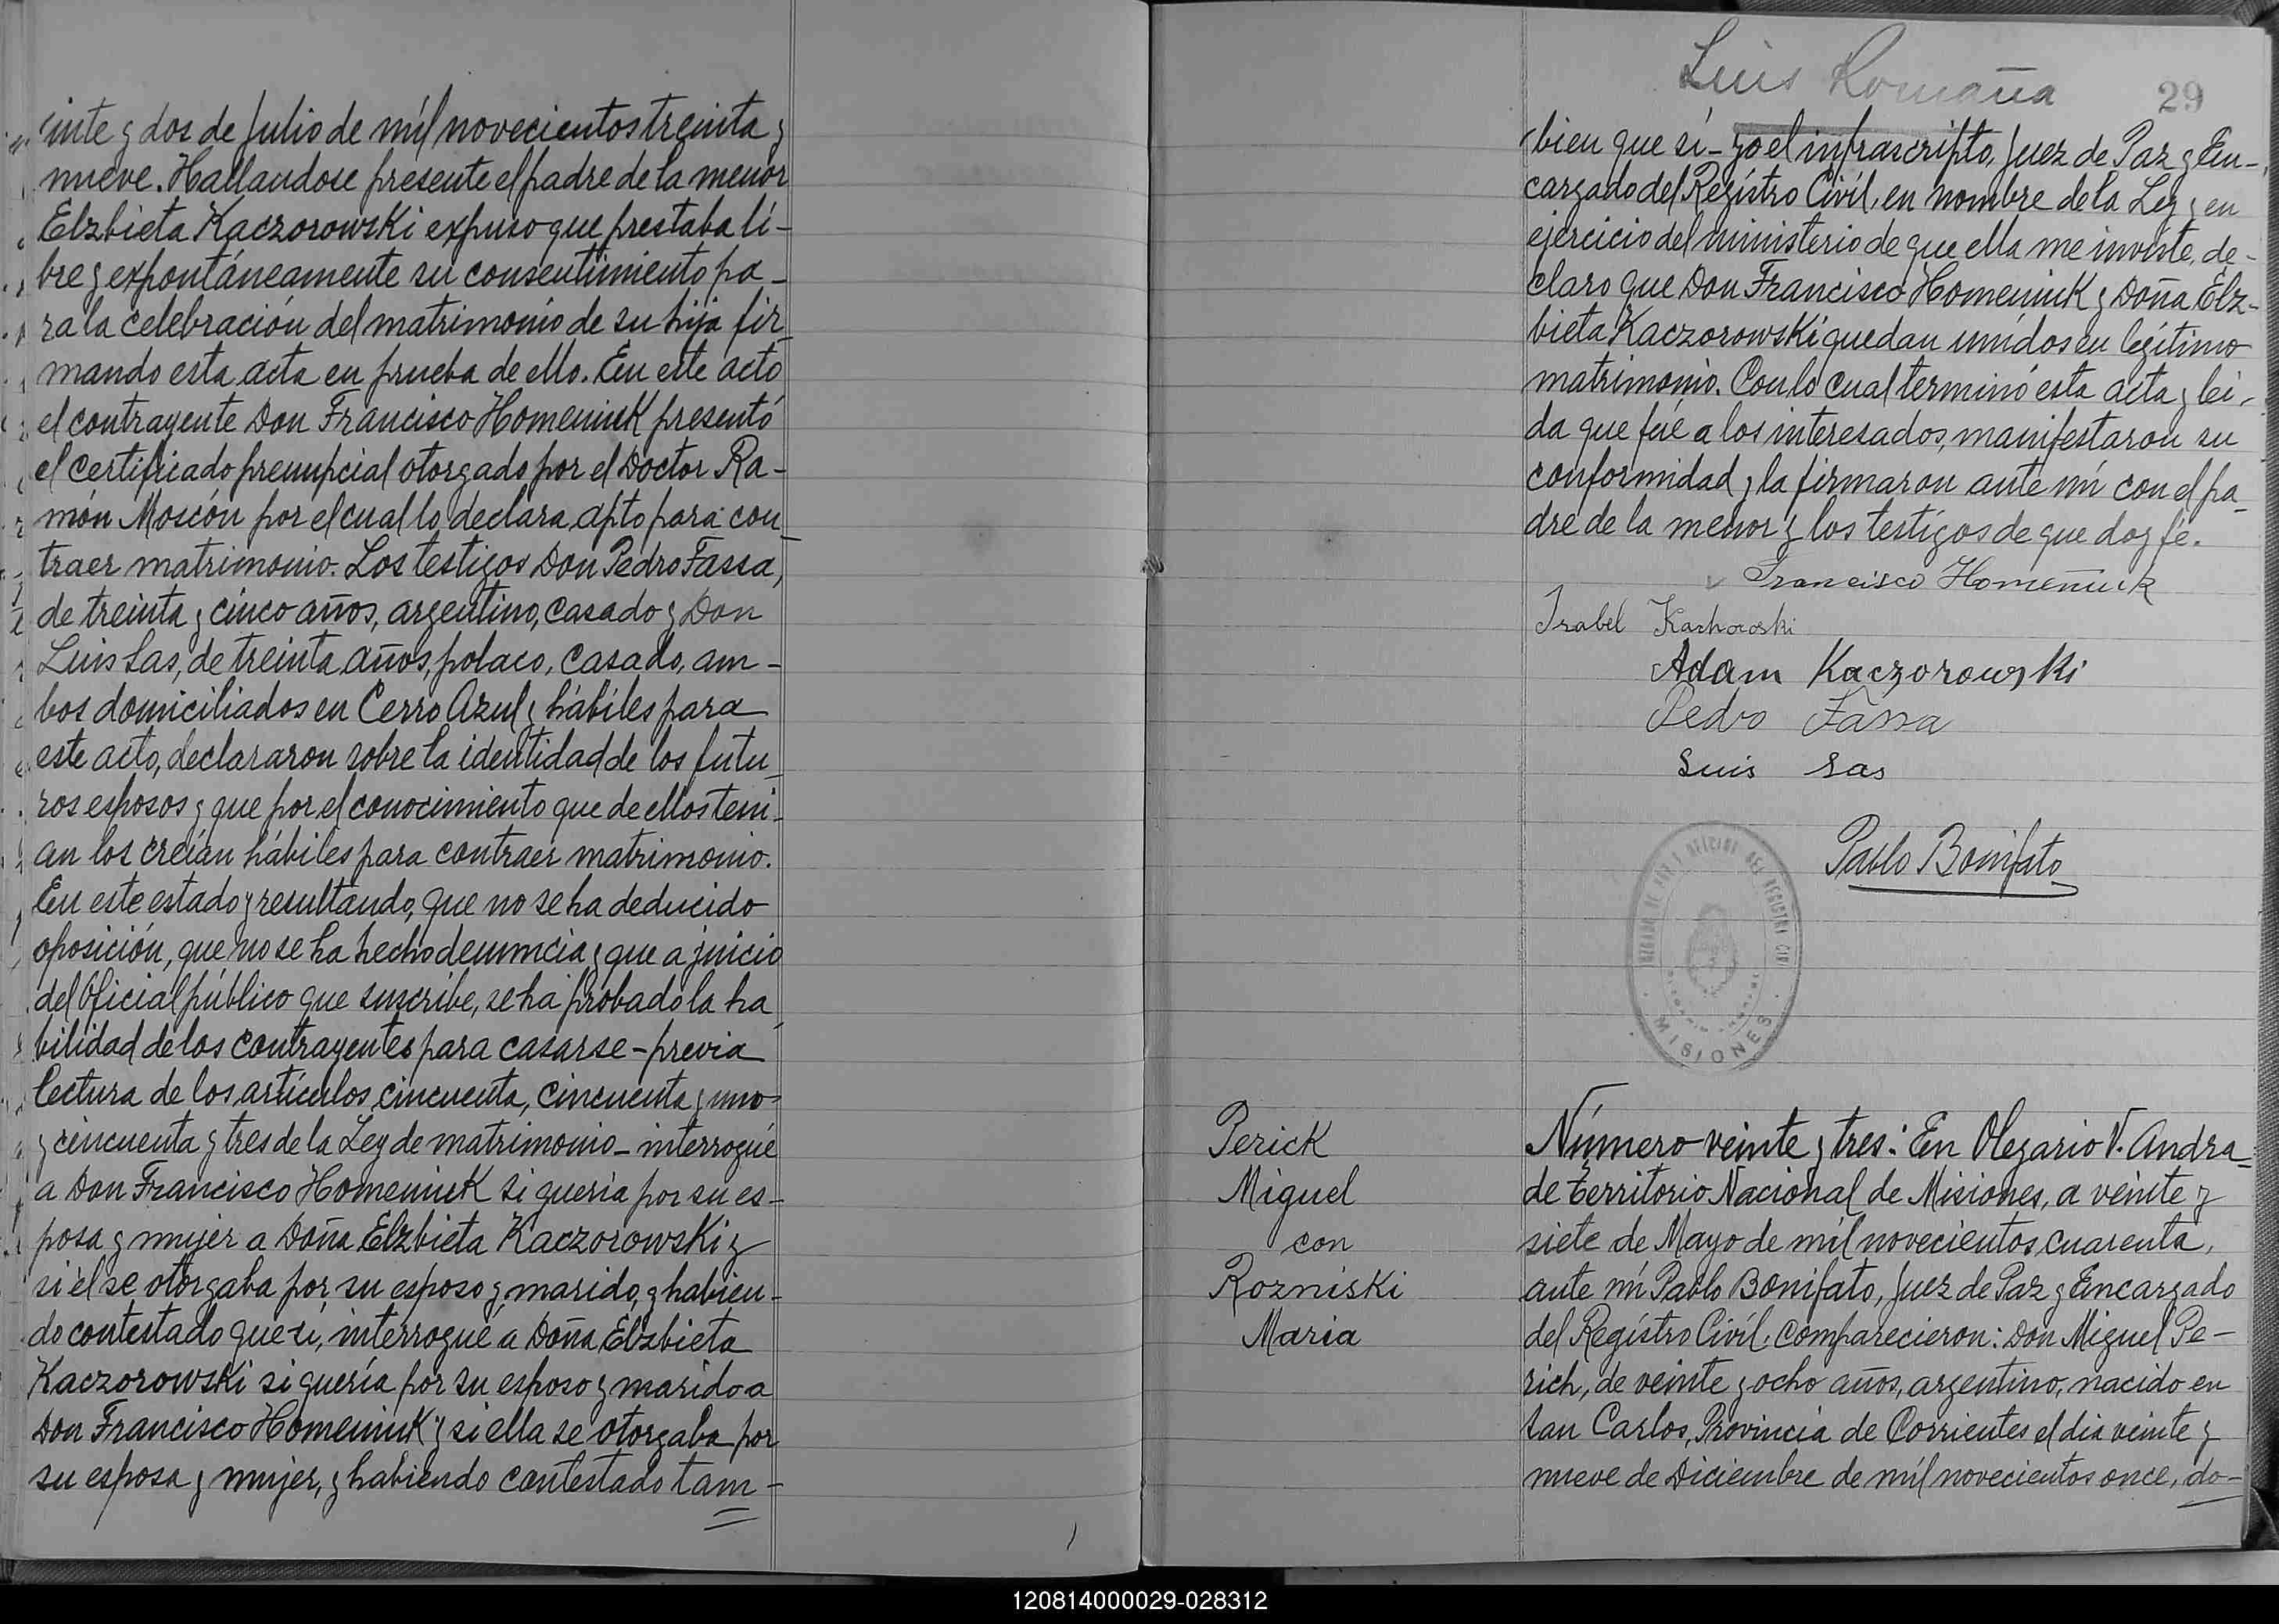 inte y dos de Julio de mil novecientos treinta y
nueve. Hallandose presente el padre de la menor
Elzbieta Kaczorowski expuso que prestaba li-
bre y expontáneamente su consentimiento pa-
ra la celebración del matrimonio de su hija fir-
mando esta acta en prueba de ello. En este acto
el contrayente Don Francisco Homeniuk presentó
el certificado prenupcial otorgado por el Doctor Ra-
món Moscón por el cual lo declara apto para con-
traer matrimonio. Los testigos Don Pedro Fassa,
de treinta y cinco años, argentino, casado y Don
Luis Sas, de treinta años, polaco, casado, am-
bos domiciliados en Cerro Azul y hábiles para
este acto, declararon sobre la identidad de los futu-
ros esposos y que por el conocimiento que de ellos teni-
an los creían hábiles para contraer matrimonio.
En este estado y resultando, que no se ha deducido
oposición, que no se ha hecho denuncia y que a juicio
del Oficial público que suscribe, se ha probado la ha-
bilidad de los contrayentes para casarse - previa
lectura de los artículos cincuenta, cincuenta y uno
y cincuenta y tres de la Ley de matrimonio - interrogué
a Don Francisco Homeniuk si queria por su es-
posa y mujer a Doña Elzbieta Kaczorowski y
si él se otorgaba por su esposo y marido, y habien-
do contestado que si, interrogué a Doña Elzbieta
Kaczorowski si quería por su esposo y marido a
Don Francisco Homeniuk y si ella se otorgaba por
su esposa y mujer, y habiendo contestado tam-
Luis Romaña
29
bien que sí - yo el infrascripto, Juez de Paz y En-
cargado del Registro Civil, en nombre de la Ley y en
ejercicio del ministerio de que ella me inviste, de-
claro que Don Francisco Homeniuk y Doña Elz-
bieta Kaczorowski quedan unidos en legítimo
matrimonio. Con lo cual terminó esta acta y lei-
da que fué a los interesados, manifestaron su
conformidad y la firmaron ante mí con el pa-
dre de la menor y los testigos de que doy fé.
Francisco Homeñiuk
Isabel Kachoroski
Adam Kaczorowski
Pedro Fassa
Luis Sas
Pablo Bonifato
MISIONES
Perick
Miguel
con
Rozniski
Maria
Número veinte y tres: En Olegario V. Andra-
de Territorio Nacional de Misiones, a veinte y
siete de Mayo de mil novecientos cuarenta,
ante mí Pablo Bonifato, Juez de Paz y Encargado
del Registro Civil, comparecieron: Don Miguel Pe-
rich, de veinte y ocho años, argentino, nacido en
San Carlos, Provincia de Corrientes el dia veinte y
nueve de Diciembre de mil novecientos once, do-
120814000029-028312